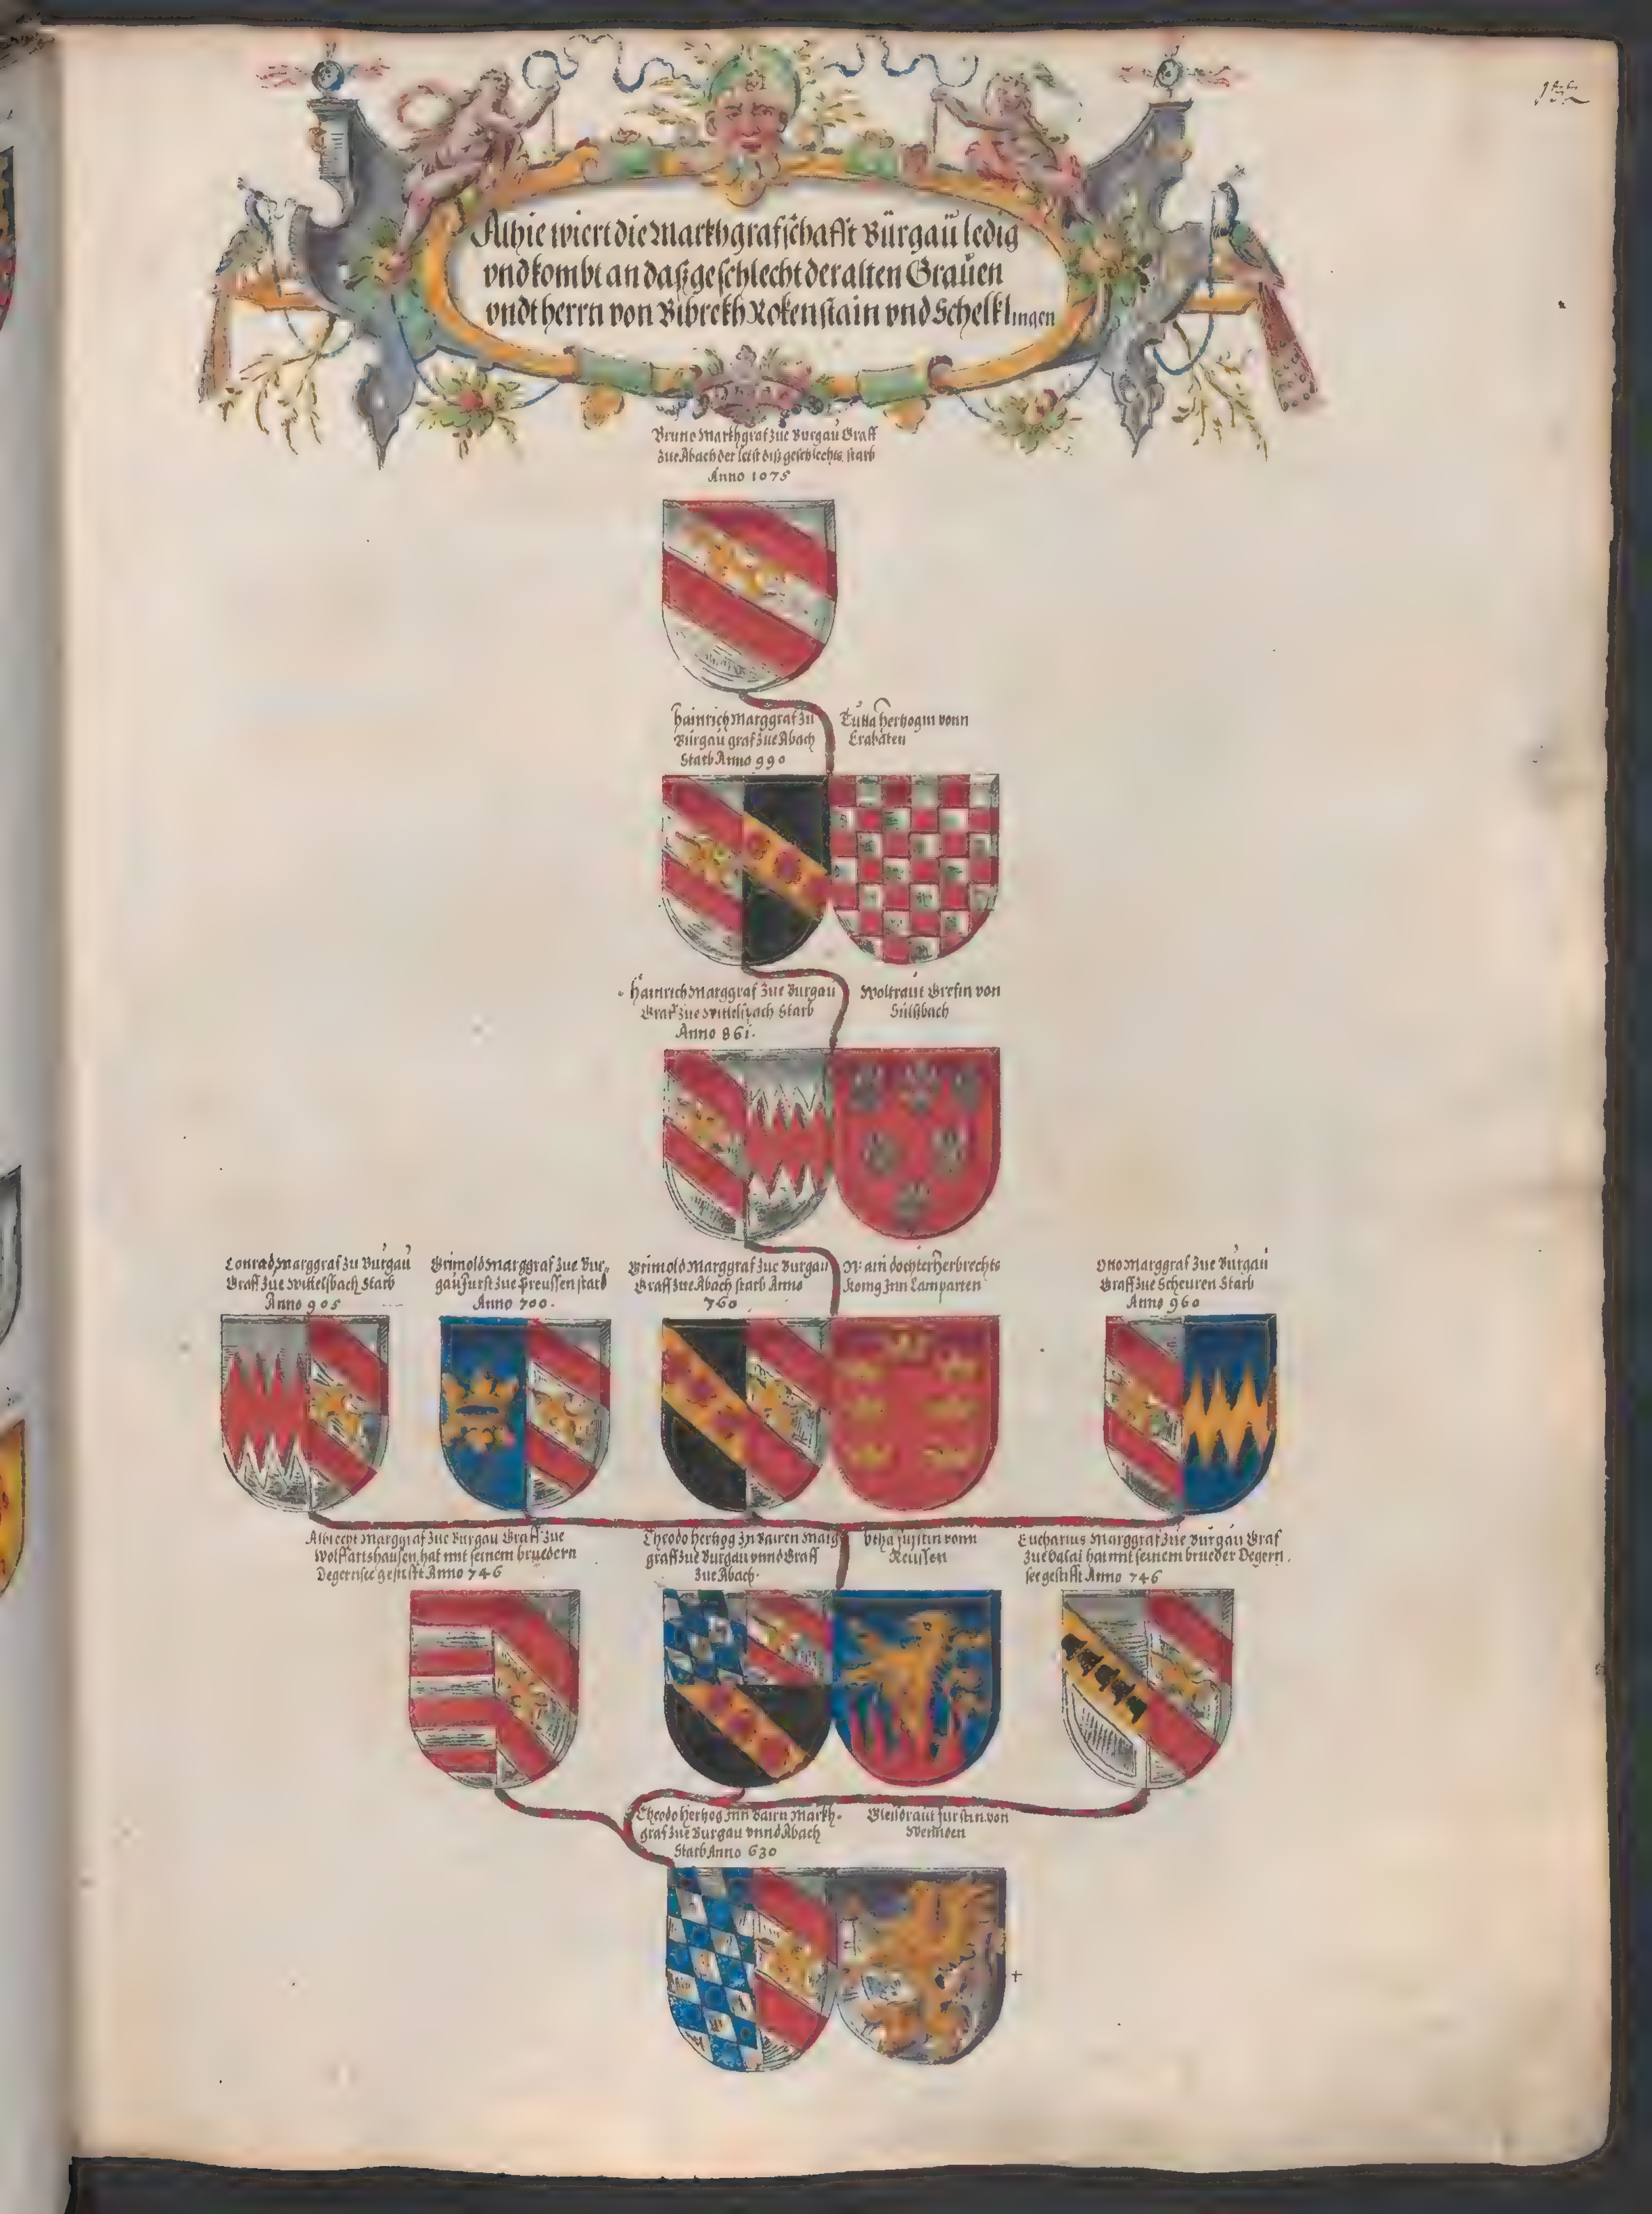 Alhie wiert die Markhgrafschafft Bürgaü ledig
vnd kombt an daß geschlecht der alten Grauen
vndt herrn von Bibrekh Rokenstain vnd Schelklingen
Bruno Markhgraf zue Burgaü Graff
zue Abach der letst diß geschlechts starb
Anno 1075
Hainrich Marggraf zu
Burgaü graf zue Abach
Starb Anno 990
Tutta Hertzogin vonn
Crabaten
Hainrich Marggraf zue Burgaü
Graf zue Wittelspach Starb
Anno 861.
Woltraut Grefin von
Sultzbach
Conrad Marggraf zu Burgaü
Graff zue Wittelsbach Starb
Anno 905
Grimold Marggraf zue Bur-
gaü Furst zue Preussen starb
Anno 700.
Grimold Marggraf zue Burgaü
Graff zue Abach starb Anno
760
N: ain dochter Herbrechts
Konig Inn Lamparten
Otto Marggraf zue Burgaü
Graff zue Scheuren Starb
Anno 960
Albrecht Marggraf zue Burgau Graff zue
Wolffartshausen, hat mit seinem bruedern
Degernsee gestifft Anno 746
Theodo Hertzog In Bairen Marg
graff zue Burgau vnnd Graff
zue Abach.
Vtha Furstin vonn
Reussen
Eucharius Marggraf zue Burgau Graf
zue hat mit seinem brueder Degern.
see gestifft Anno 746
Theodo Hertzog Inn Bairn Markh-
graf zue Burgau vnnd Abach
Starb Anno 630
furstin von
Wennden